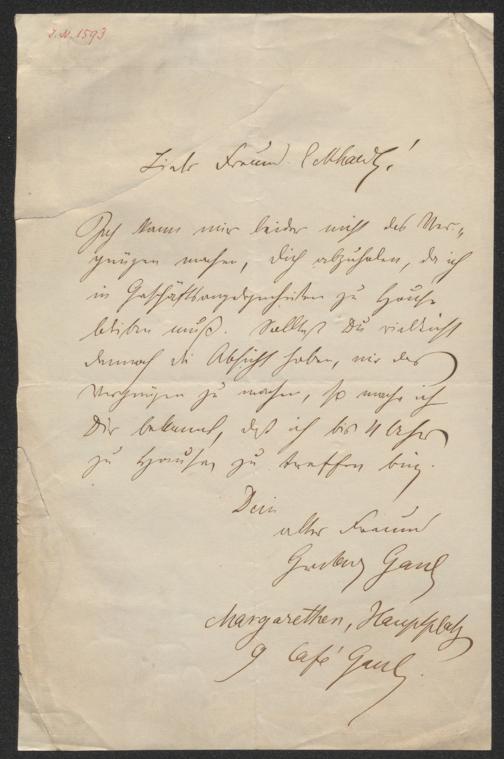 J.N. 1593
Lieber Freund Eckhardt!
Ich kann mir leider nicht das Ver-
gnügen machen, Dich abzuholen, da ich
in Geschäftsangelegenheiten zu Hause
bleiben muß. Solltest Du vielleicht
dennoch die Absicht haben, mir das
Vergnügen zu machen, so mache ich
Dir bekannt, daß ich bis 4 Uhr
zu Hause zu treffen bin.
Dein
alter Freund
Gaul
Margarethen, Hauptplatz
9 Café Gaul.